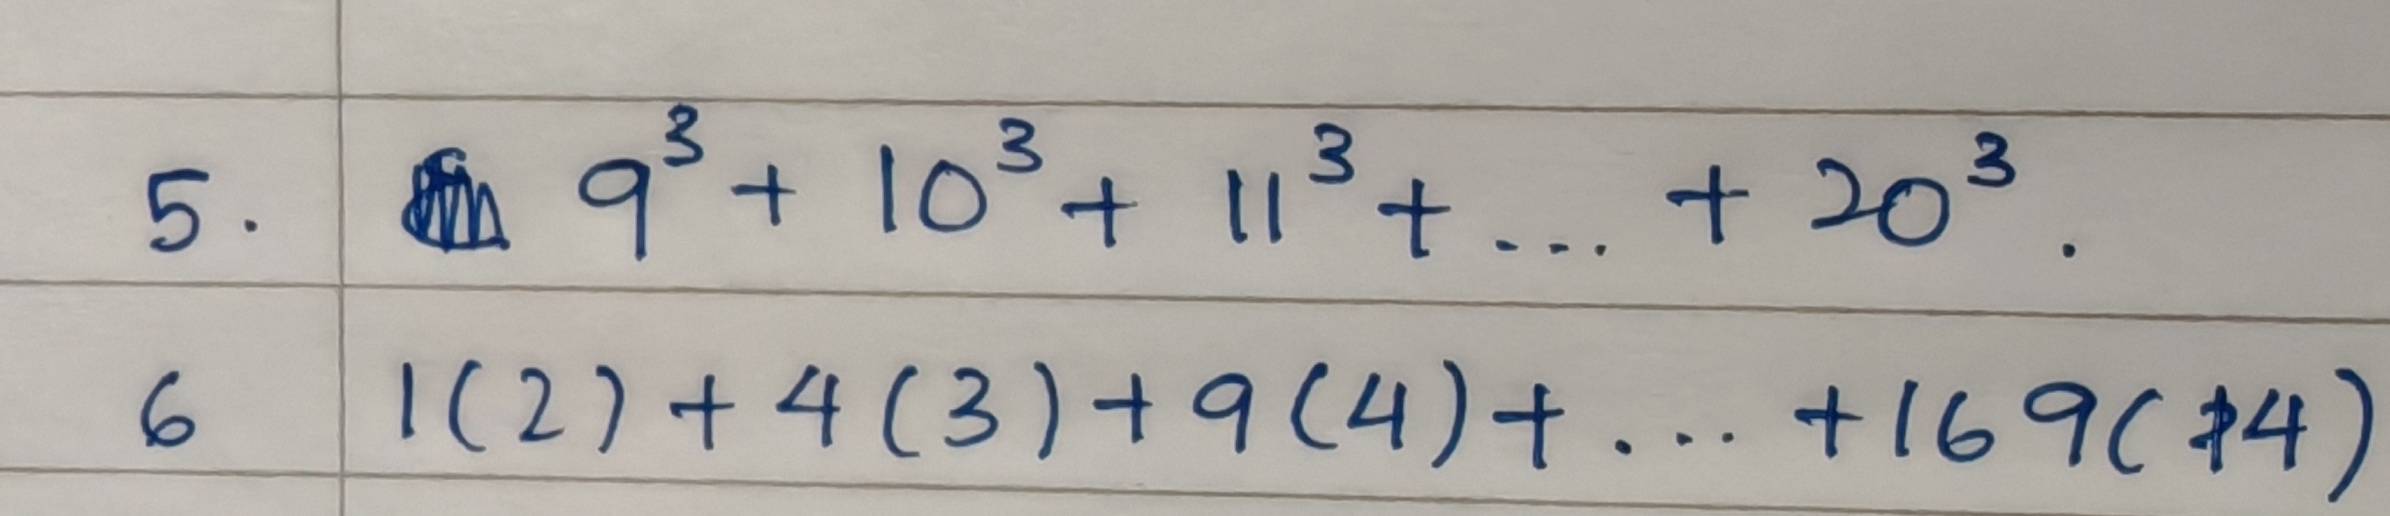 5. 9³ + 10³ + 11³ + ... + 20³.
6 1(2) + 4(3) + 9(4) + ... + 169(14)